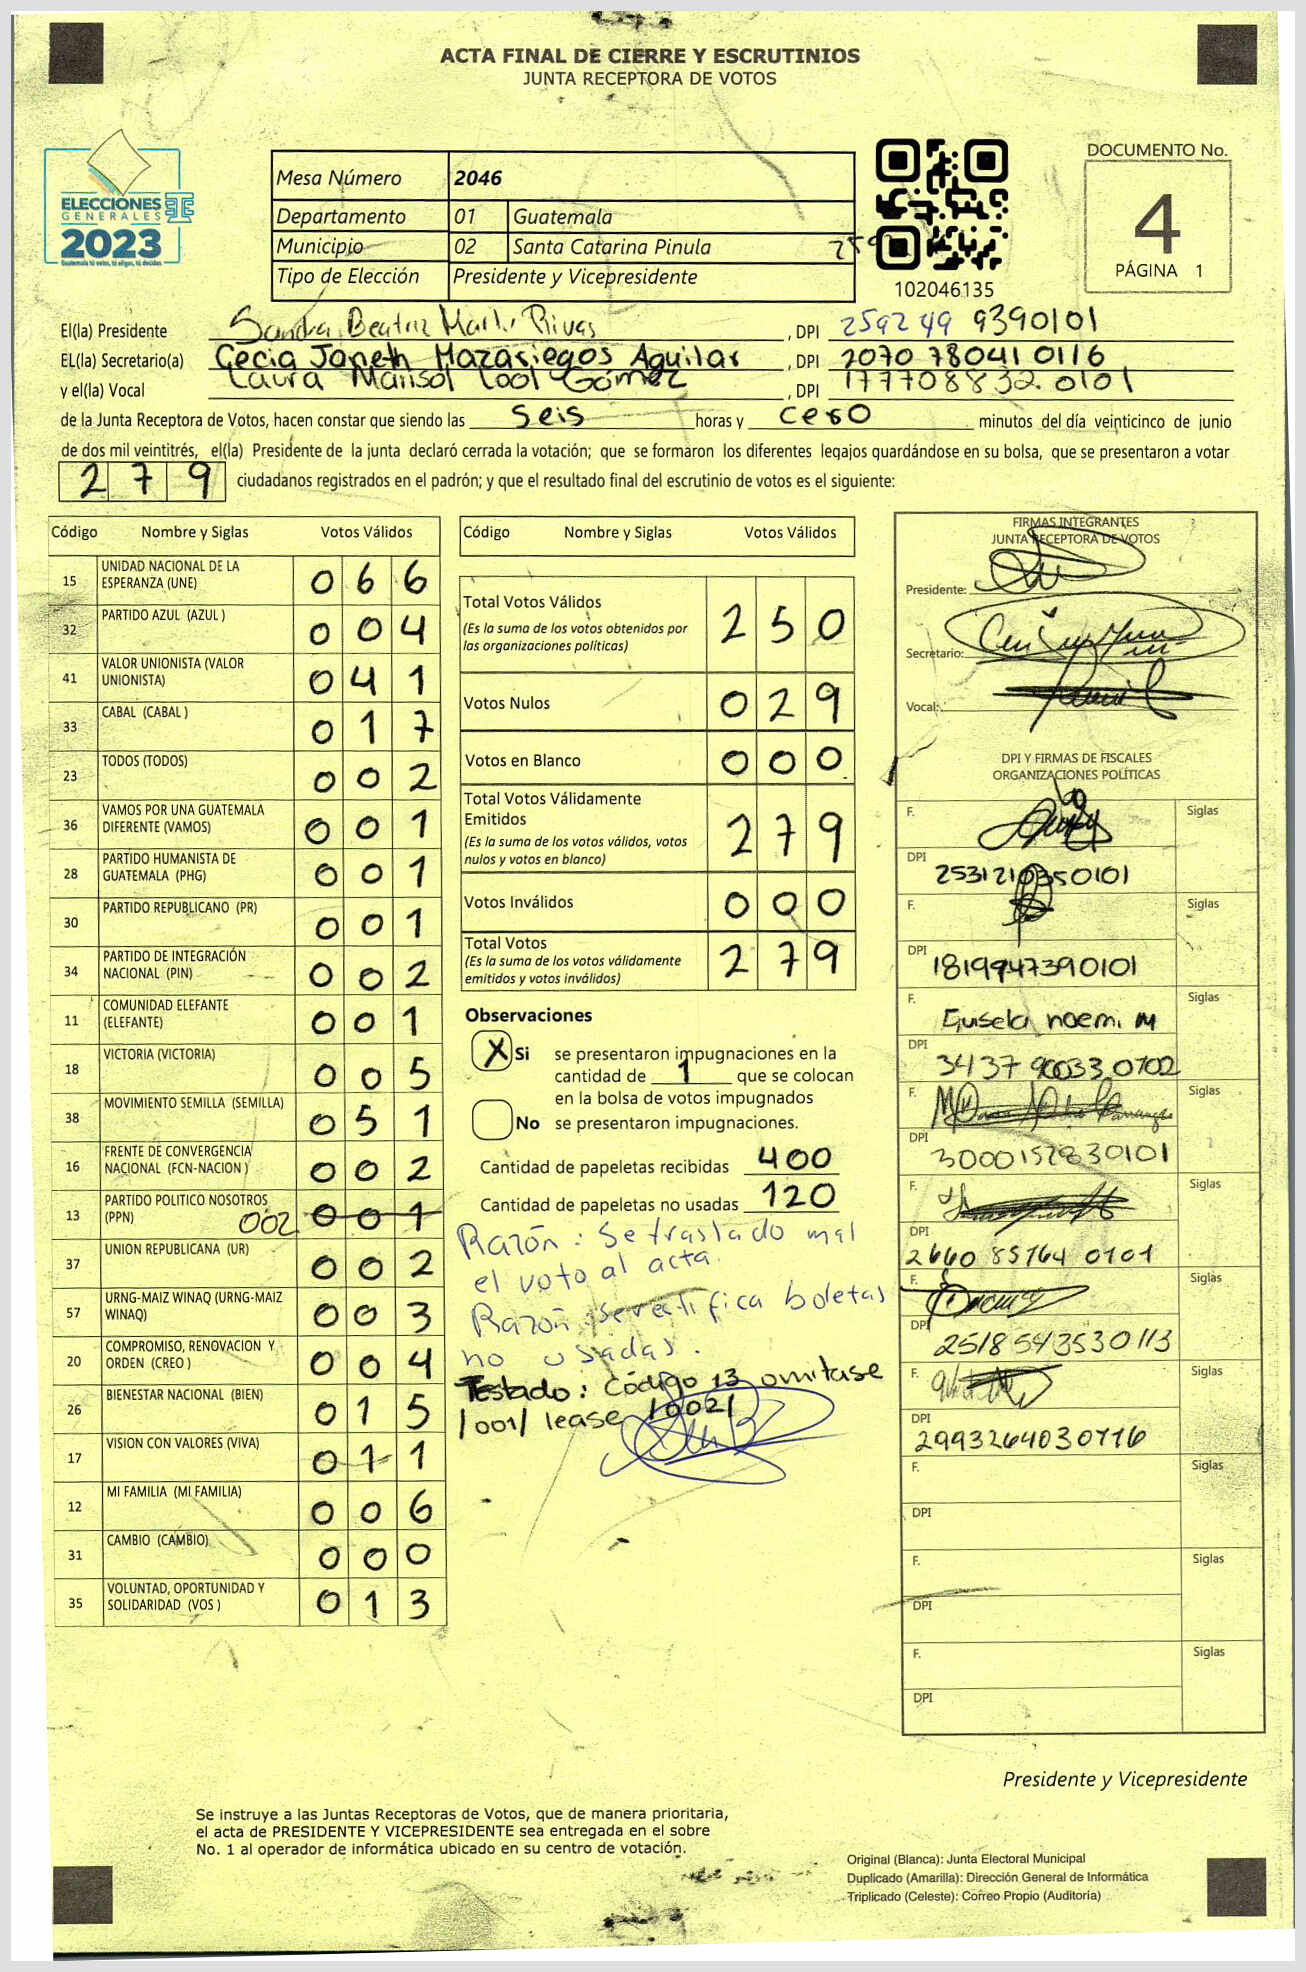 ACTA FINAL DE CIERRE Y ESCRUTINIOS
JUNTA RECEPTORA DE VOTOS
ELECCIONES
GENERALES
2023
Guatemala tú votas, tú eliges, tú decides
Mesa Número 2046
Departamento 01 Guatemala
Municipio 02 Santa Catarina Pinula
Tipo de Elección Presidente y Vicepresidente
259
102046135
DOCUMENTO No.
4
PÁGINA 1
El(la) Presidente Sandra Beatriz Rivas , DPI 259249 9390101
EL(la) Secretario(a) Cecia Janeth Mazariegos Aguilar , DPI 2070 78041 0116
y el(la) Vocal Laura Marisol Cool Gómez , DPI 177708832 0101
de la Junta Receptora de Votos, hacen constar que siendo las seis horas y cero minutos del día veinticinco de junio
de dos mil veintitrés, el(la) Presidente de la junta declaró cerrada la votación; que se formaron los diferentes legajos guardándose en su bolsa, que se presentaron a votar
279 ciudadanos registrados en el padrón; y que el resultado final del escrutinio de votos es el siguiente:
Código Nombre y Siglas Votos Válidos
15 UNIDAD NACIONAL DE LA ESPERANZA (UNE) 066
32 PARTIDO AZUL (AZUL ) 004
41 VALOR UNIONISTA (VALOR UNIONISTA) 041
33 CABAL (CABAL ) 017
23 TODOS (TODOS) 002
36 VAMOS POR UNA GUATEMALA DIFERENTE (VAMOS) 001
28 PARTIDO HUMANISTA DE GUATEMALA (PHG) 001
30 PARTIDO REPUBLICANO (PR) 001
34 PARTIDO DE INTEGRACIÓN NACIONAL (PIN) 002
11 COMUNIDAD ELEFANTE (ELEFANTE) 001
18 VICTORIA (VICTORIA) 005
38 MOVIMIENTO SEMILLA (SEMILLA) 051
16 FRENTE DE CONVERGENCIA NACIONAL (FCN-NACION ) 002
13 PARTIDO POLITICO NOSOTROS (PPN) 002 001
37 UNION REPUBLICANA (UR) 002
57 URNG-MAIZ WINAQ (URNG-MAIZ WINAQ) 003
20 COMPROMISO, RENOVACION Y ORDEN (CREO ) 004
26 BIENESTAR NACIONAL (BIEN) 015
17 VISION CON VALORES (VIVA) 011
12 MI FAMILIA (MI FAMILIA) 006
31 CAMBIO (CAMBIO) 000
35 VOLUNTAD, OPORTUNIDAD Y SOLIDARIDAD (VOS ) 013
Código Nombre y Siglas Votos Válidos
Total Votos Válidos 250
(Es la suma de los votos obtenidos por
las organizaciones políticas)
Votos Nulos 029
Votos en Blanco 000
Total Votos Válidamente
Emitidos 279
(Es la suma de los votos válidos, votos
nulos y votos en blanco)
Votos Inválidos 000
Total Votos 279
(Es la suma de los votos válidamente
emitidos y votos inválidos)
Observaciones
X Si se presentaron impugnaciones en la
cantidad de 1 que se colocan
en la bolsa de votos impugnados
No se presentaron impugnaciones.
Cantidad de papeletas recibidas 400
Cantidad de papeletas no usadas 120
Razón: Se traslado mal
el voto al acta.
Razón: Se rectifica boletas
no usadas.
Testado: Código 13 omitase
/001/ lease /002/
FIRMAS INTEGRANTES
JUNTA RECEPTORA DE VOTOS
Presidente:
Secretario:
Vocal:
DPI Y FIRMAS DE FISCALES
ORGANIZACIONES POLÍTICAS
F. Siglas
DPI 2531210350101
F. Siglas
DPI 1819947390101
F. Guisela noemi M Siglas
DPI 3437 90033 0702
F. Siglas
DPI 3000152830101
F. Siglas
DPI 2660 85764 0101
F. Siglas
DPI 2518 543530113
F. Siglas
DPI 2993264030116
F. Siglas
DPI
F. Siglas
DPI
F. Siglas
DPI
Presidente y Vicepresidente
Se instruye a las Juntas Receptoras de Votos, que de manera prioritaria,
el acta de PRESIDENTE Y VICEPRESIDENTE sea entregada en el sobre
No. 1 al operador de informática ubicado en su centro de votación.
Original (Blanca): Junta Electoral Municipal
Duplicado (Amarilla): Dirección General de Informática
Triplicado (Celeste): Correo Propio (Auditoría)